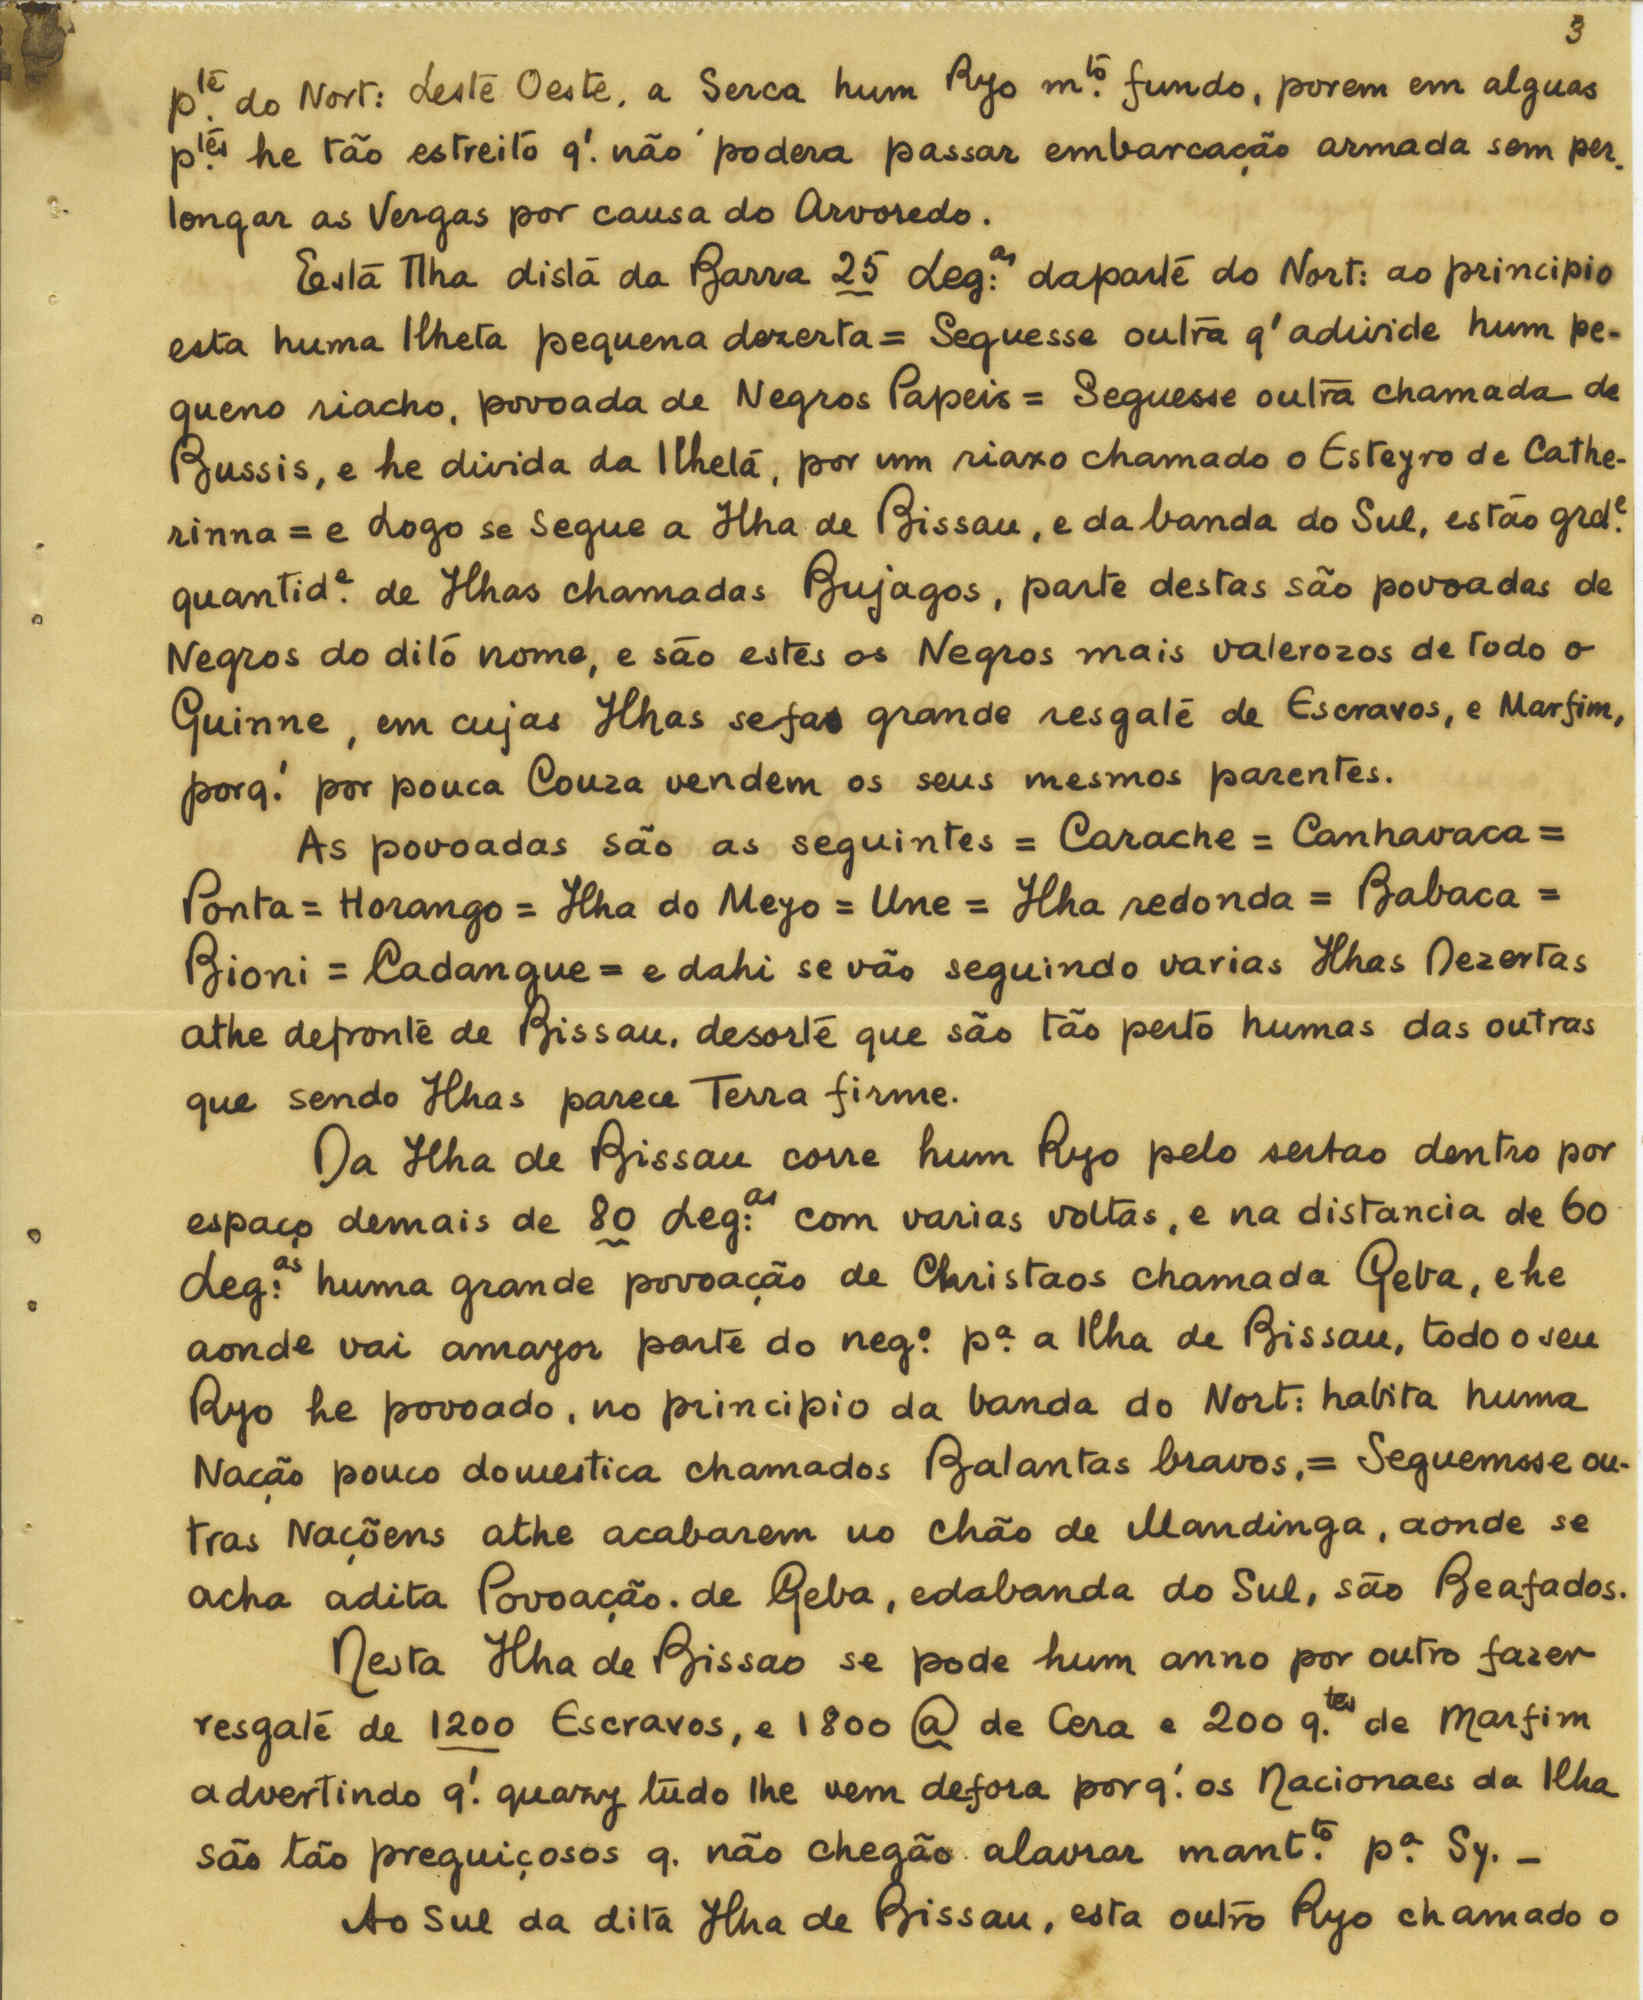 3
p.te do Nort: Leste Oeste, a Serca hum Ryo m.to fundo, porem em alguas
p.tes he tão estreito q'. não podera passar embarcação armada sem per-
longar as Vergas por causa do Arvoredo.
Esta Ilha dista da Barra 25 Leg:as daparte do Nort: ao principio
esta huma Ilheta pequena dezerta = Seguesse outra q' adivide hum pe-
queno riacho, povoada de Negros Papeis = Seguesse outra chamada de
Bussis, e he divida da Ilheta, por um riaxo chamado o Esteyro de Cathe-
rinna = e Logo se Segue a Ilha de Bissau, e da banda do Sul, estão grd.e
quantid.e de Ilhas chamadas Bujagos, parte destas são povoadas de
Negros do dito nome, e são estes os Negros mais valerozos de todo o
Guinne, em cujas Ilhas sefas grande resgate de Escravos, e Marfim,
porq'. por pouca Couza vendem os seus mesmos parentes.
As povoadas são as seguintes = Carache = Canhavaca =
Ponta = Horango = Ilha do Meyo = Une = Ilha redonda = Babaca =
Bioni = Cadangue = e dahi se vão seguindo varias Ilhas Dezertas
athe defronte de Bissau, desorte que são tão perto humas das outras
que sendo Ilhas parece Terra firme.
Da Ilha de Bissau corre hum Ryo pelo sertao dentro por
espaço demais de 80 Leg:as com varias voltas, e na distancia de 60
Leg:as huma grande povoação de Christaos chamada Geba, ehe
aonde vai amayor parte do neg.o p.a a Ilha de Bissau, todo o seu
Ryo he povoado, no principio da banda do Nort: habita huma
Nação pouco domestica chamados Balantas bravos, = Seguemsse ou-
tras Naçõens athe acabarem no chão de Mandinga, aonde se
acha adita Povoação. de Geba, edabanda do Sul, são Beafados.
Nesta Ilha de Bissao se pode hum anno por outro fazer
resgate de 1200 Escravos, e 1800 @ de Cera e 200 q.tes de Marfim
advertindo q'. quazy tudo lhe vem defora porq'. os Nacionaes da Ilha
são tão preguiçosos q. não chegão alavrar mant.to p.a Sy. -
Ao Sul da dita Ilha de Bissau, esta outro Ryo chamado o